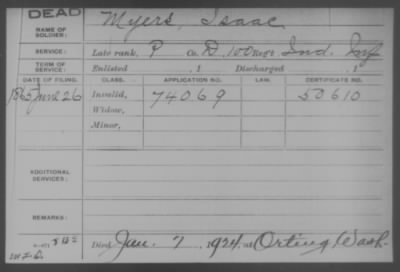 DEAD
NAME OF SOLDIER: Myers, Isaac
SERVICE: Late rank, P Co. D, 100 Regt Ind. Inf
TERM OF SERVICE: Enlisted , 1 Discharged , 1
DATE OF FILING. CLASS. APPLICATION NO. LAW. CERTIFICATE NO.
1865 June 26 Invalid, 74069 50610
Widow,
Minor,
ADDITIONAL SERVICES:
REMARKS:
Died Jan. 7, 1924, at Orting, Wash.